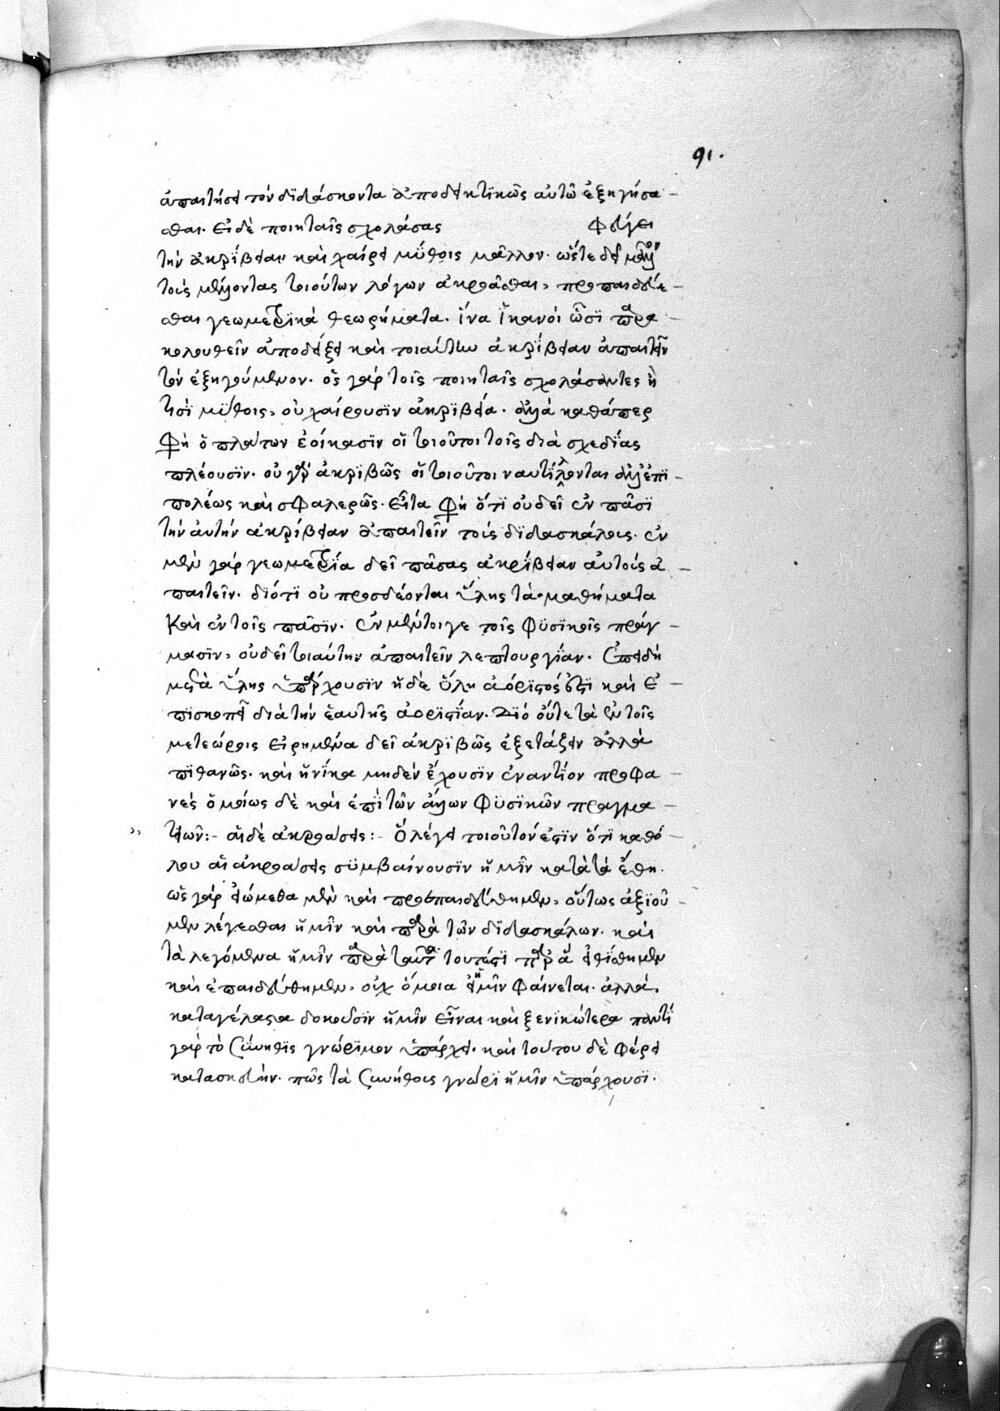 91.
ἀπαιτήσει τὸν διδάσκοντα ἀποδεικτικῶς αὐτῶ ἐξηγήσα-
σθαι. εἰ δὲ ποιηταῖς σχολάσας φεύγει
τὴν ἀκρίβειαν καὶ χαίρει μύθοις μᾶλλον. ὥστε δεῖ
τοὺς μέλλοντας τοιούτων λόγων ἀκροᾶσθαι, προπαιδεύε-
σθαι γεωμετρικὰ θεωρήματα. ἵνα ἱκανοὶ ὦσι παρα-
κολουθεῖν ἀποδείξει καὶ τοιαύτην ἀκρίβειαν ἀπαιτεῖν
τὸν ἐξηγούμενον. ὡς γὰρ τοῖς ποιηταῖς σχολάσαντες ἢ
τισὶ μύθοις, οὐ χαίρουσιν ἀκριβεία. ἀλλὰ καθάπερ
φησὶ ὁ πλάτων ἐοίκασιν οἱ τοιοῦτοι τοῖς διὰ σχεδίας
πλέουσιν. οὐ γὰρ ἀκριβῶς οἱ τοιοῦτοι ναυτίλλονται ἀλλ' ἐπι
πολέως καὶ σφαλερῶς. εἶτα φησὶ ὅτι οὐ δεῖ ἐν πᾶσι
τὴν αὐτὴν ἀκρίβειαν ἀπαιτεῖν τοὺς διδασκάλους. ἐν
μὲν γὰρ γεωμετρία δεῖ πᾶσαν ἀκρίβειαν αὐτοὺς ἀ-
παιτεῖν. διότι οὐ προσδέονται ὕλης τὰ μαθήματα
καὶ ἐν τοῖς πᾶσιν. ἐν μέντοιγε τοῖς φυσικοῖς πράγ-
μασιν, οὐ δεῖ τοιαύτην ἀπαιτεῖν λεπτουργίαν. ἐπειδὴ
μετὰ ὕλης ὑπάρχουσιν ἡ δὲ ὕλη ἀόριστός ἐστι καὶ ἐ-
πισκοπεῖ διὰ τὴν ἑαυτῆς ἀοριστίαν. διὸ οὔτε τὰ ἐν τοῖς
μετεώροις εἰρημένα δεῖ ἀκριβῶς ἐξετάζειν ἀλλὰ
πιθανῶς. καὶ ἡνίκα μηδὲν ἔχουσιν ἐναντίον προφα-
νὲς ὁμοίως δὲ καὶ ἐπὶ τῶν ἄλλων φυσικῶν πραγμά-
των:- αἱ δὲ ἀκροάσεις:- ὃ λέγει τοιοῦτόν ἐστιν ὅτι καθό-
λου αἱ ἀκροάσεις συμβαίνουσιν ἡμῖν κατὰ τὰ ἔθη.
ὡς γὰρ εἰώθαμεν καὶ προεπαιδεύθημεν, οὕτως ἀξιοῦ-
μεν λέγεσθαι ἡμῖν καὶ παρὰ τῶν διδασκάλων. καὶ
τὰ λεγόμενα ἡμῖν παρὰ ταῦτα τουτέστι παρ' ἃ εἰθίσθημεν
καὶ ἐπαιδεύθημεν, οὐχ ὅμοια ἡμῖν φαίνεται. ἀλλὰ
καταγέλαστα δοκοῦσιν ἡμῖν εἶναι καὶ ξενικώτερα παντὶ
γὰρ τὸ σύνηθες γνώριμον ὑπάρχει. καὶ τούτου δὲ φέρει
κατασκευήν. πῶς τὰ συνήθεις γνώρι ἡμῖν ὑπάρχουσι.